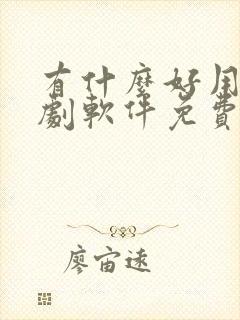 有什麼好用
劇軟件免費
廖宙遠